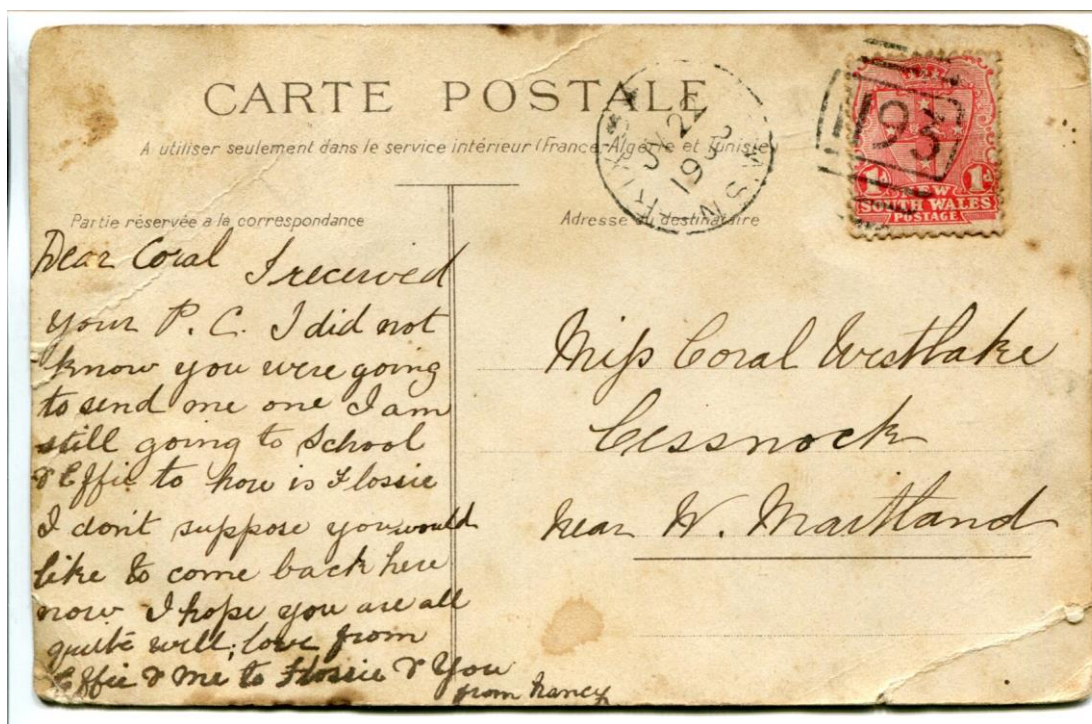 CARTE POSTALE
A utiliser seulement dans le service intérieur (France, Algérie et Tunisie)
Partie réservée a la correspondance
Adresse du destinataire
JU 22
N.S.W
193
1d 1d
NEW
SOUTH WALES
POSTAGE
Dear Coral I received
your P. C. I did not
know you were going
to send me one I am
still going to School
& Effie to how is Flossie
I don't suppose you would
like to come back here
now I hope you are all
quite well; love from
Effie & Me to Flossie & You
from Nancy
Miss Coral Westlake
Cessnock
near W. Maitland